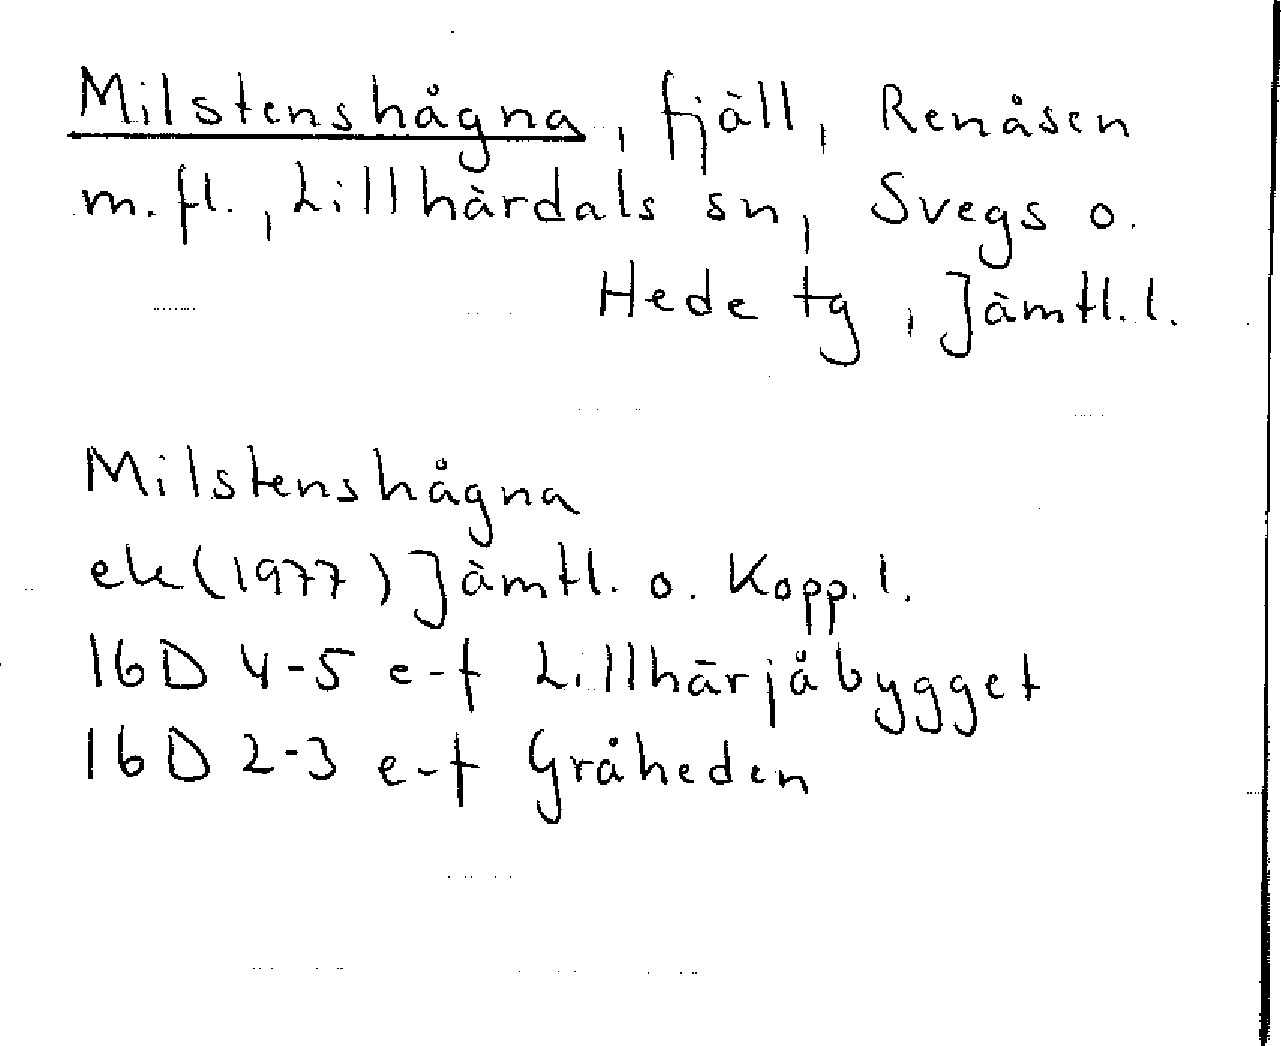 Milstenshågna, fjäll, Renåsen
m.fl., Lillhärdals sn, Svegs o.
Hede tg, Jämtl.l.
Milstenshågna
ek (1977) Jämtl. o. Kopp. l.
16D 4-5 e-f Lillhärjåbygget
16D 2-3 e-f Gråheden